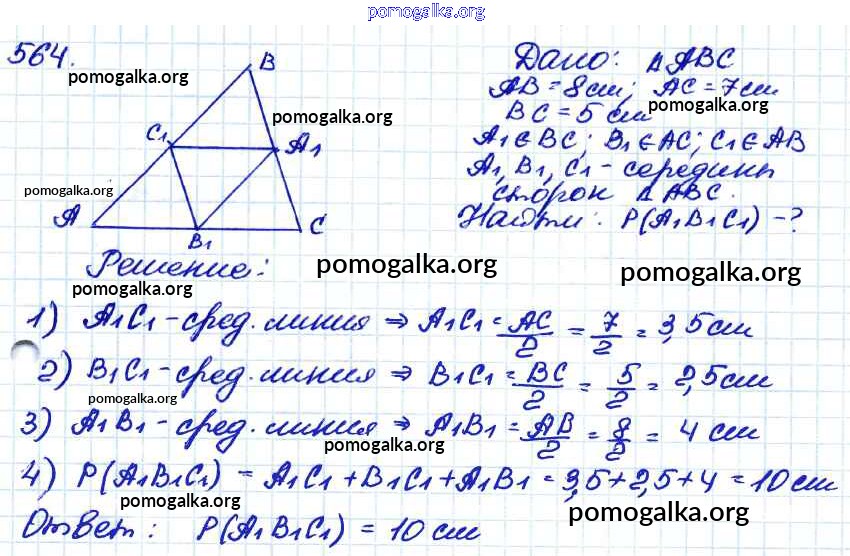 pomogalka.org
564.
pomogalka.org
B
C1
A1
A
B1
C
pomogalka.org
pomogalka.org
Дано: △ABC
AB = 8см; AC = 7см
BC = 5 см
pomogalka.org
A1∈BC; B1∈AC; C1∈AB
A1, B1, C1 - середины
сторон △ABC.
Найти: P(A1B1C1) - ?
Решение:
pomogalka.org
pomogalka.org
pomogalka.org
1) A1C1 - сред. линия ⇒ A1C1 = AC/2 = 7/2 = 3,5см
2) B1C1 - сред. линия ⇒ B1C1 = BC/2 = 5/2 = 2,5см
pomogalka.org
3) A1B1 - сред. линия ⇒ A1B1 = AB/2 = 8/2 = 4 см
pomogalka.org
4) P(A1B1C1) = A1C1 + B1C1 + A1B1 = 3,5 + 2,5 + 4 = 10 см
pomogalka.org
pomogalka.org
Ответ: P(A1B1C1) = 10 см